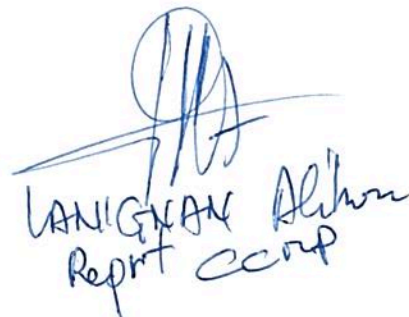 LANIGNAN Alihou
Reprt CCMP